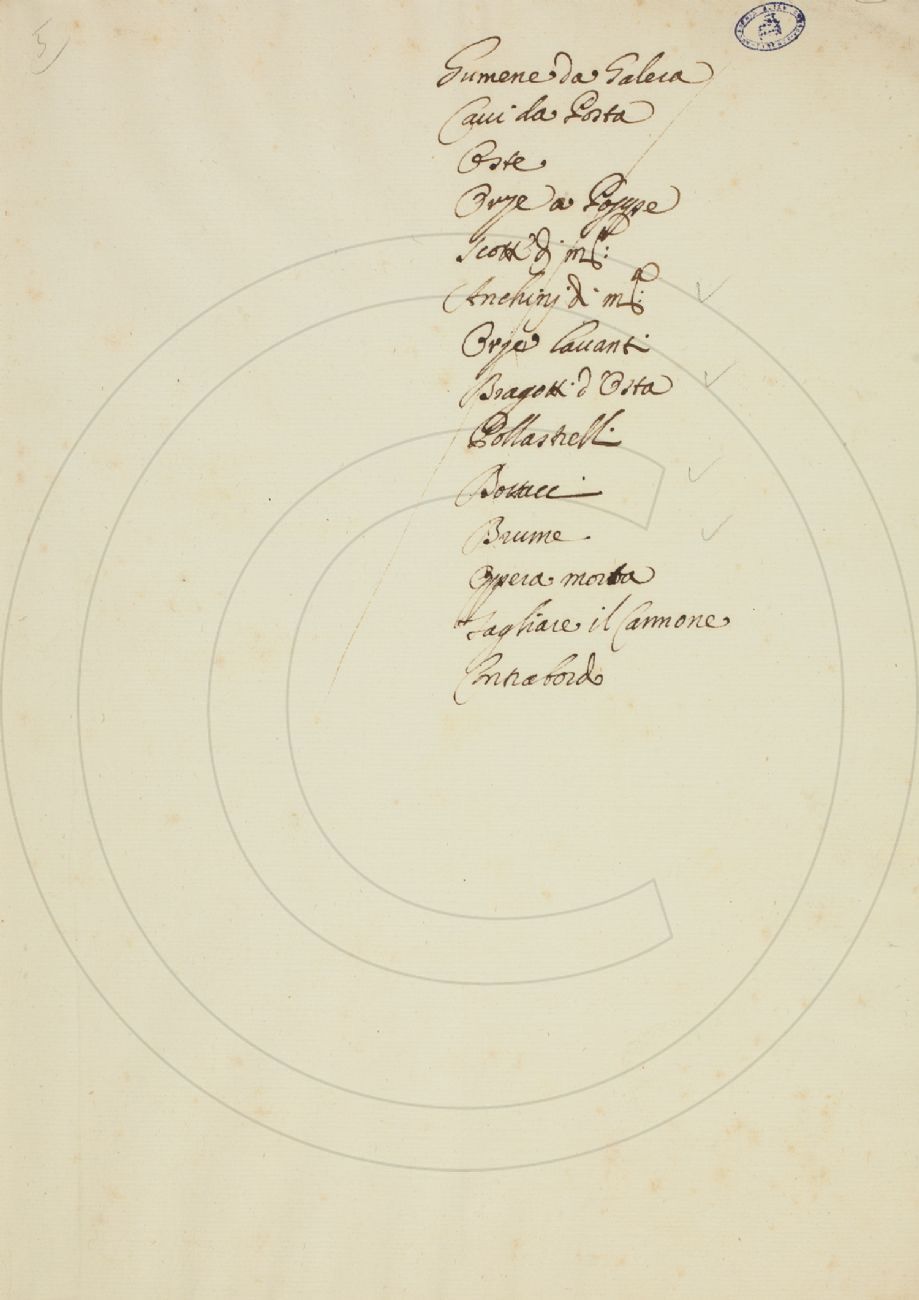 5
Gumene da Galera
Caui da Posta
Oste
Orze a Poppe
Scotte di m.
Anchini di m.
Orze Cauanti
Bragotti d'Osta
Pollastrelli
Bottacci
Brume
Opera morta
Tagliare il Cannone
Contrabordo